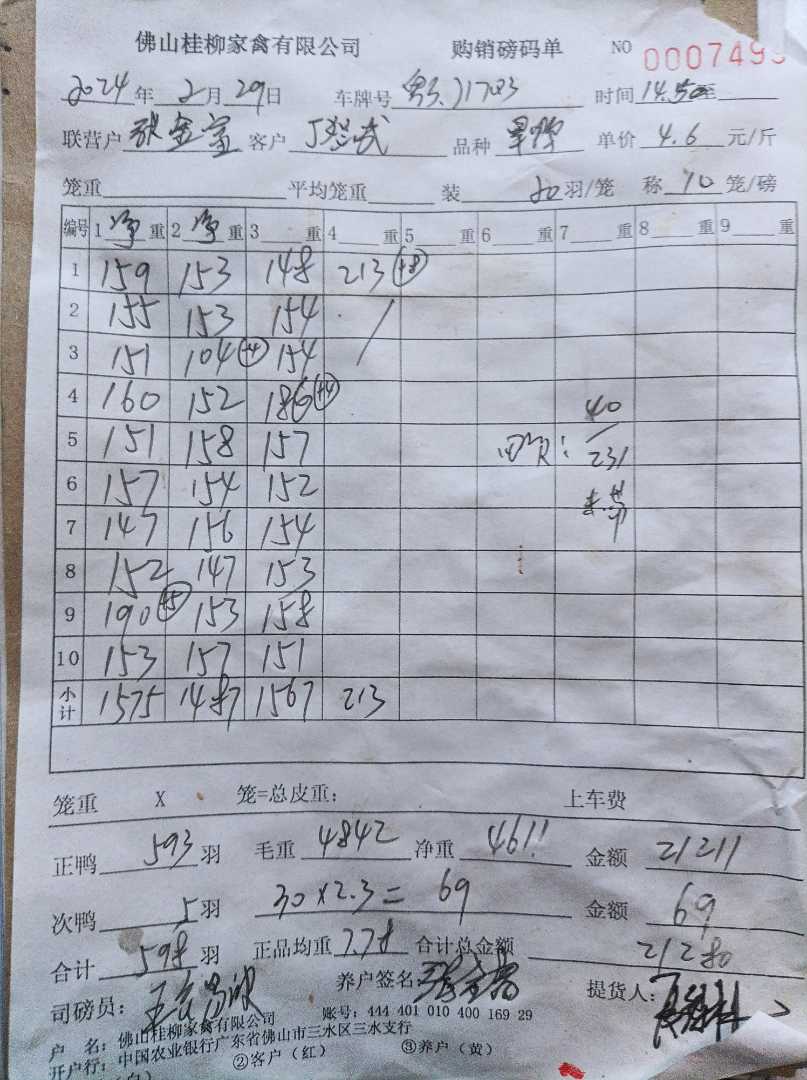 佛山桂柳家禽有限公司 购销磅码单 NO 000749
2024年2月29日 车牌号 粤 J1783 时间 14.50至
联营户 客户 品种 单价 4.6 元/斤
笼重 平均笼重 装 20 羽/笼 称 10 笼/磅
编号 1 净 重 2 净 重 3 重 4 重 5 重 6 重 7 重 8 重 9 重
1 159 153 148 213 +8
2 155 153 154 /
3 151 104 +4 154
4 160 152 186 +4 40
5 151 158 157 231
6 157 154 152
7 147 156 154
8 152 147 153
9 190 +5 153 158
10 153 157 151
小计 1575 1487 1567 213
笼重 X 笼=总皮重: 上车费
正鸭 593 羽 毛重 4842 净重 4611 金额 21211
次鸭 5 羽 30×2.3= 69 金额 69
合计 598 羽 正品均重 7.78 合计总金额 21280
司磅员: 养户签名: 提货人:
户 名: 佛山桂柳家禽有限公司 账号: 444 401 010 400 169 29
开户行: 中国农业银行广东省佛山市三水区三水支行
(白) ②客户(红) ③养户(黄)